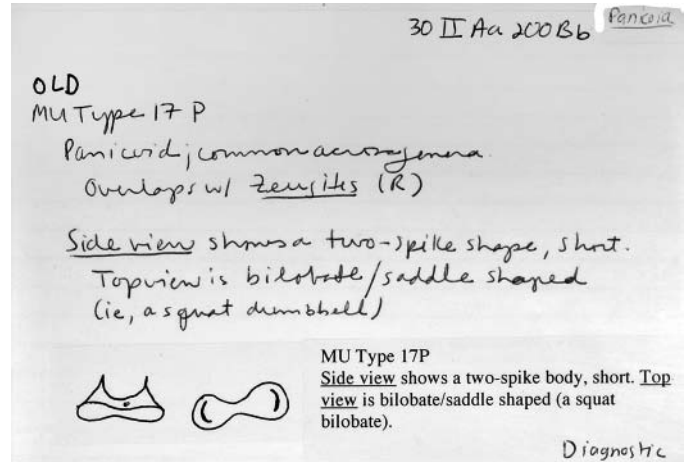 30 II Aa 200Bb
Panicoid
OLD
MU Type 17 P
Panicoid; common across genera.
Overlaps w/ Zeugites (R)
Side view shows a two-spike shape, short.
Top view is bilobate/saddle shaped
(ie, a squat dumbbell)
MU Type 17P
Side view shows a two-spike body, short. Top
view is bilobate/saddle shaped (a squat
bilobate).
Diagnostic